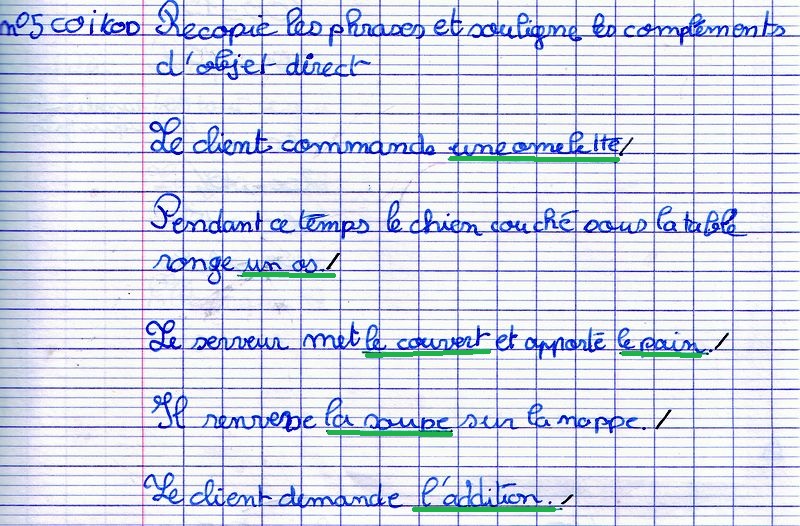 n°5 coikoo Recopie les phrases et souligne les compléments
d'objet direct
Le client commande une omelette
Pendant ce temps le chien couché sous la table
ronge un os.
Le serveur met le couvert et apporte le pain.
Il renverse la soupe sur la nappe.
Le client demande l'addition.